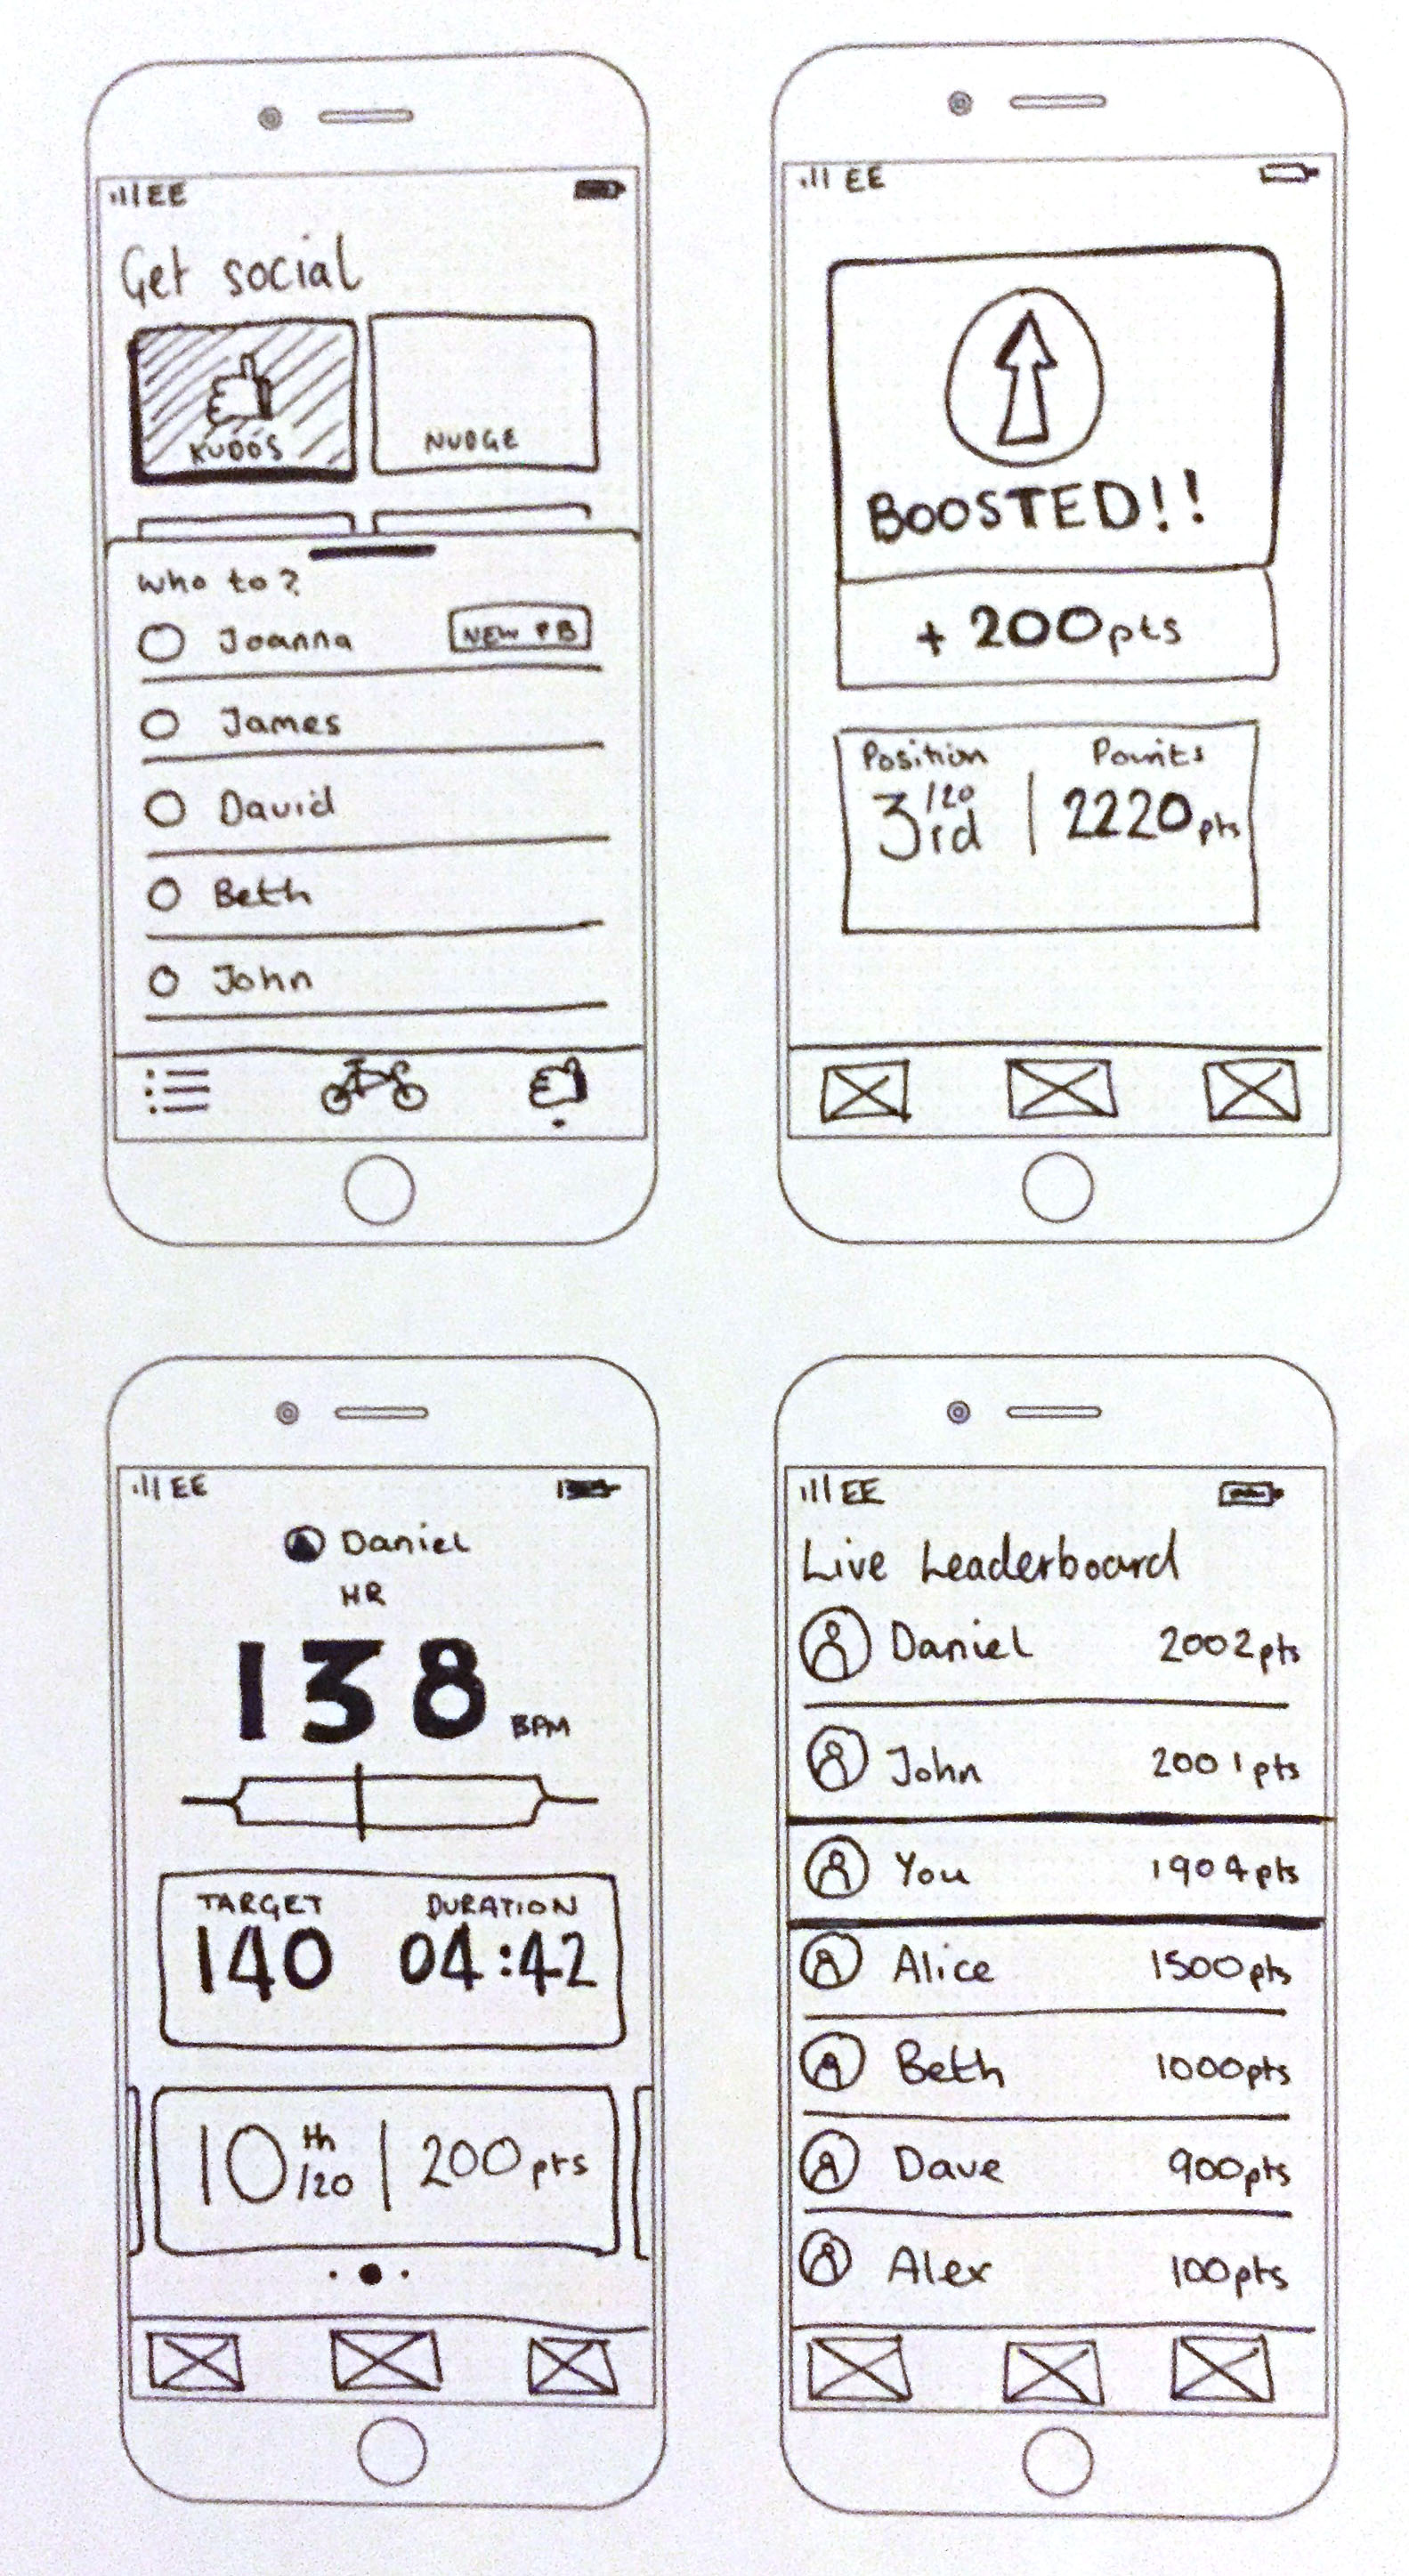 EE
Get social
KUDOS
NUDGE
Who to?
Joanna NEW PB
James
David
Beth
John
EE
BOOSTED!!
+ 200pts
Position Points
3rd/20 | 2220pts
EE
Daniel
HR
138 BPM
TARGET DURATION
140 04:42
10th/20 | 200pts
EE
Live Leaderboard
Daniel 2002pts
John 2001pts
You 1904pts
Alice 1500pts
Beth 1000pts
Dave 900pts
Alex 100pts